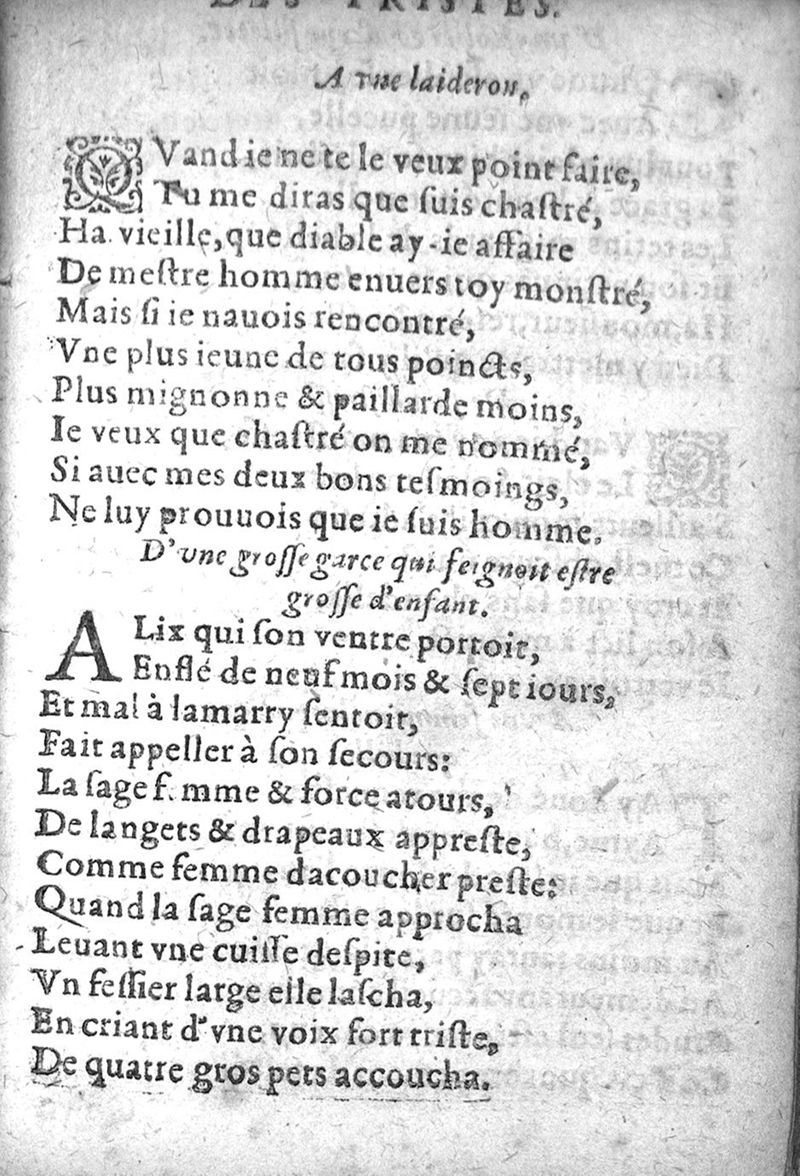 DES TRISTES.
A vne laideron,
QVand ie ne te le veux point faire,
Tu me diras que ſuis chaſtré,
Ha vieille, que diable ay-ie affaire
De meſtre homme enuers toy monſtré,
Mais ſi ie nauois rencontré,
Vne plus ieune de tous poincts,
Plus mignonne & paillarde moins,
Ie veux que chaſtré on me nommé,
Si auec mes deux bons teſmoings,
Ne luy prouuois que ie ſuis homme.
D'vne groſſe garce qui feignoit eſtre
groſſe d'enfant.
ALix qui ſon ventre portoit,
Enflé de neuf mois & ſept iours,
Et mal à lamarry ſentoit,
Fait appeller à ſon ſecours:
La ſage f mme & force atours,
De langets & drapeaux appreſte,
Comme femme dacoucher preſte:
Quand la ſage femme approcha
Leuant vne cuiſſe deſpite,
Vn feſſier large elle laſcha,
En criant d'vne voix fort triſte,
De quatre gros pets accoucha.